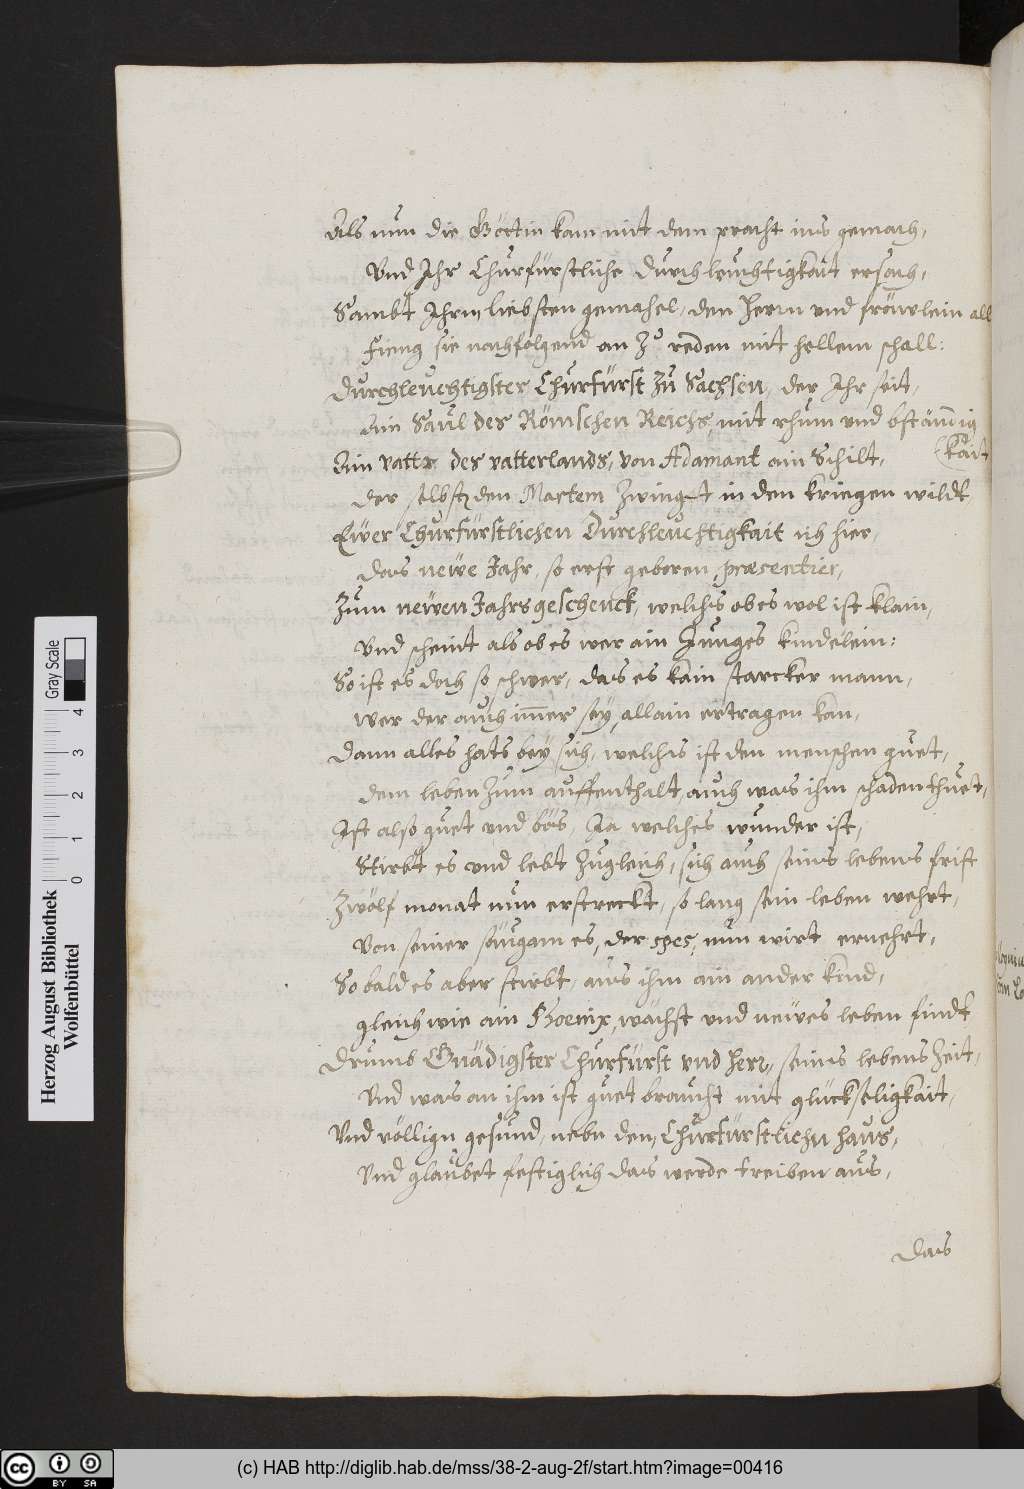 Als nun die Göttin kam mit dem pracht ins gemach,
Vnd Ihr Churfürstliche Durchleuchtigkait ersach,
Sambt Ihrm liebsten gemahel, den Herrn und fröwlein all
Fieng sie nachfolgend an Zu reden mit hellem schall:
Durchleuchtigster Churfürst Zu Sachsen, der Ihr seit,
Ain Saul des Römschen Reichs, mit rhum und bständig
(kait
Ain vatter des vatterlands, von Adamant ain Schilt,
der selbst den Martem Zwingt in den kriegen wildt,
Ewer Churfürstlichen Durchleuchtigkait ich hier,
das newe Jahr, so erst geboren, præsentier,
Zum newen Jahrs geschenck, welchs ob es wol ist klain,
Vnd scheint als ob es wer ain Junges kindelein:
So ist es doch so schwer, das es kain starcker mann,
wer der auch im̄er sey, allain ertragen kan,
Dann alles hats bey sich, welchs ist den menschen guet,
dem leben zum auffenthalt, auch was ihm schaden thuet,
Ist also guet und bös, Ja welches wunder ist,
Stirbt es und lebt Zugleich, sich auch seins lebens frist
Zwölf monat nun erstreckt, so lang sein leben wehrt,
Von seiner säugam es, der spes, nun wirt ernehrt,
So bald es aber stirbt, aus ihm ain ander kind,
gleich wie ain Phoenix, wachst und newes leben findt
Drumb Gnädigster Churfürst und Herr, seins lebens Zeit,
Vnd was an ihm ist guet braucht mit glückseligkait,
Vnd völlign gesund, nebn dem Churfürstlichn haus,
Vnd glaubet festiglich das werde treiben aus,
Das
Herzog August Bibliothek
Wolfenbüttel
0 1 2 3 4
Gray Scale
cc BY SA
(c) HAB http://diglib.hab.de/mss/38-2-aug-2f/start.htm?image=00416